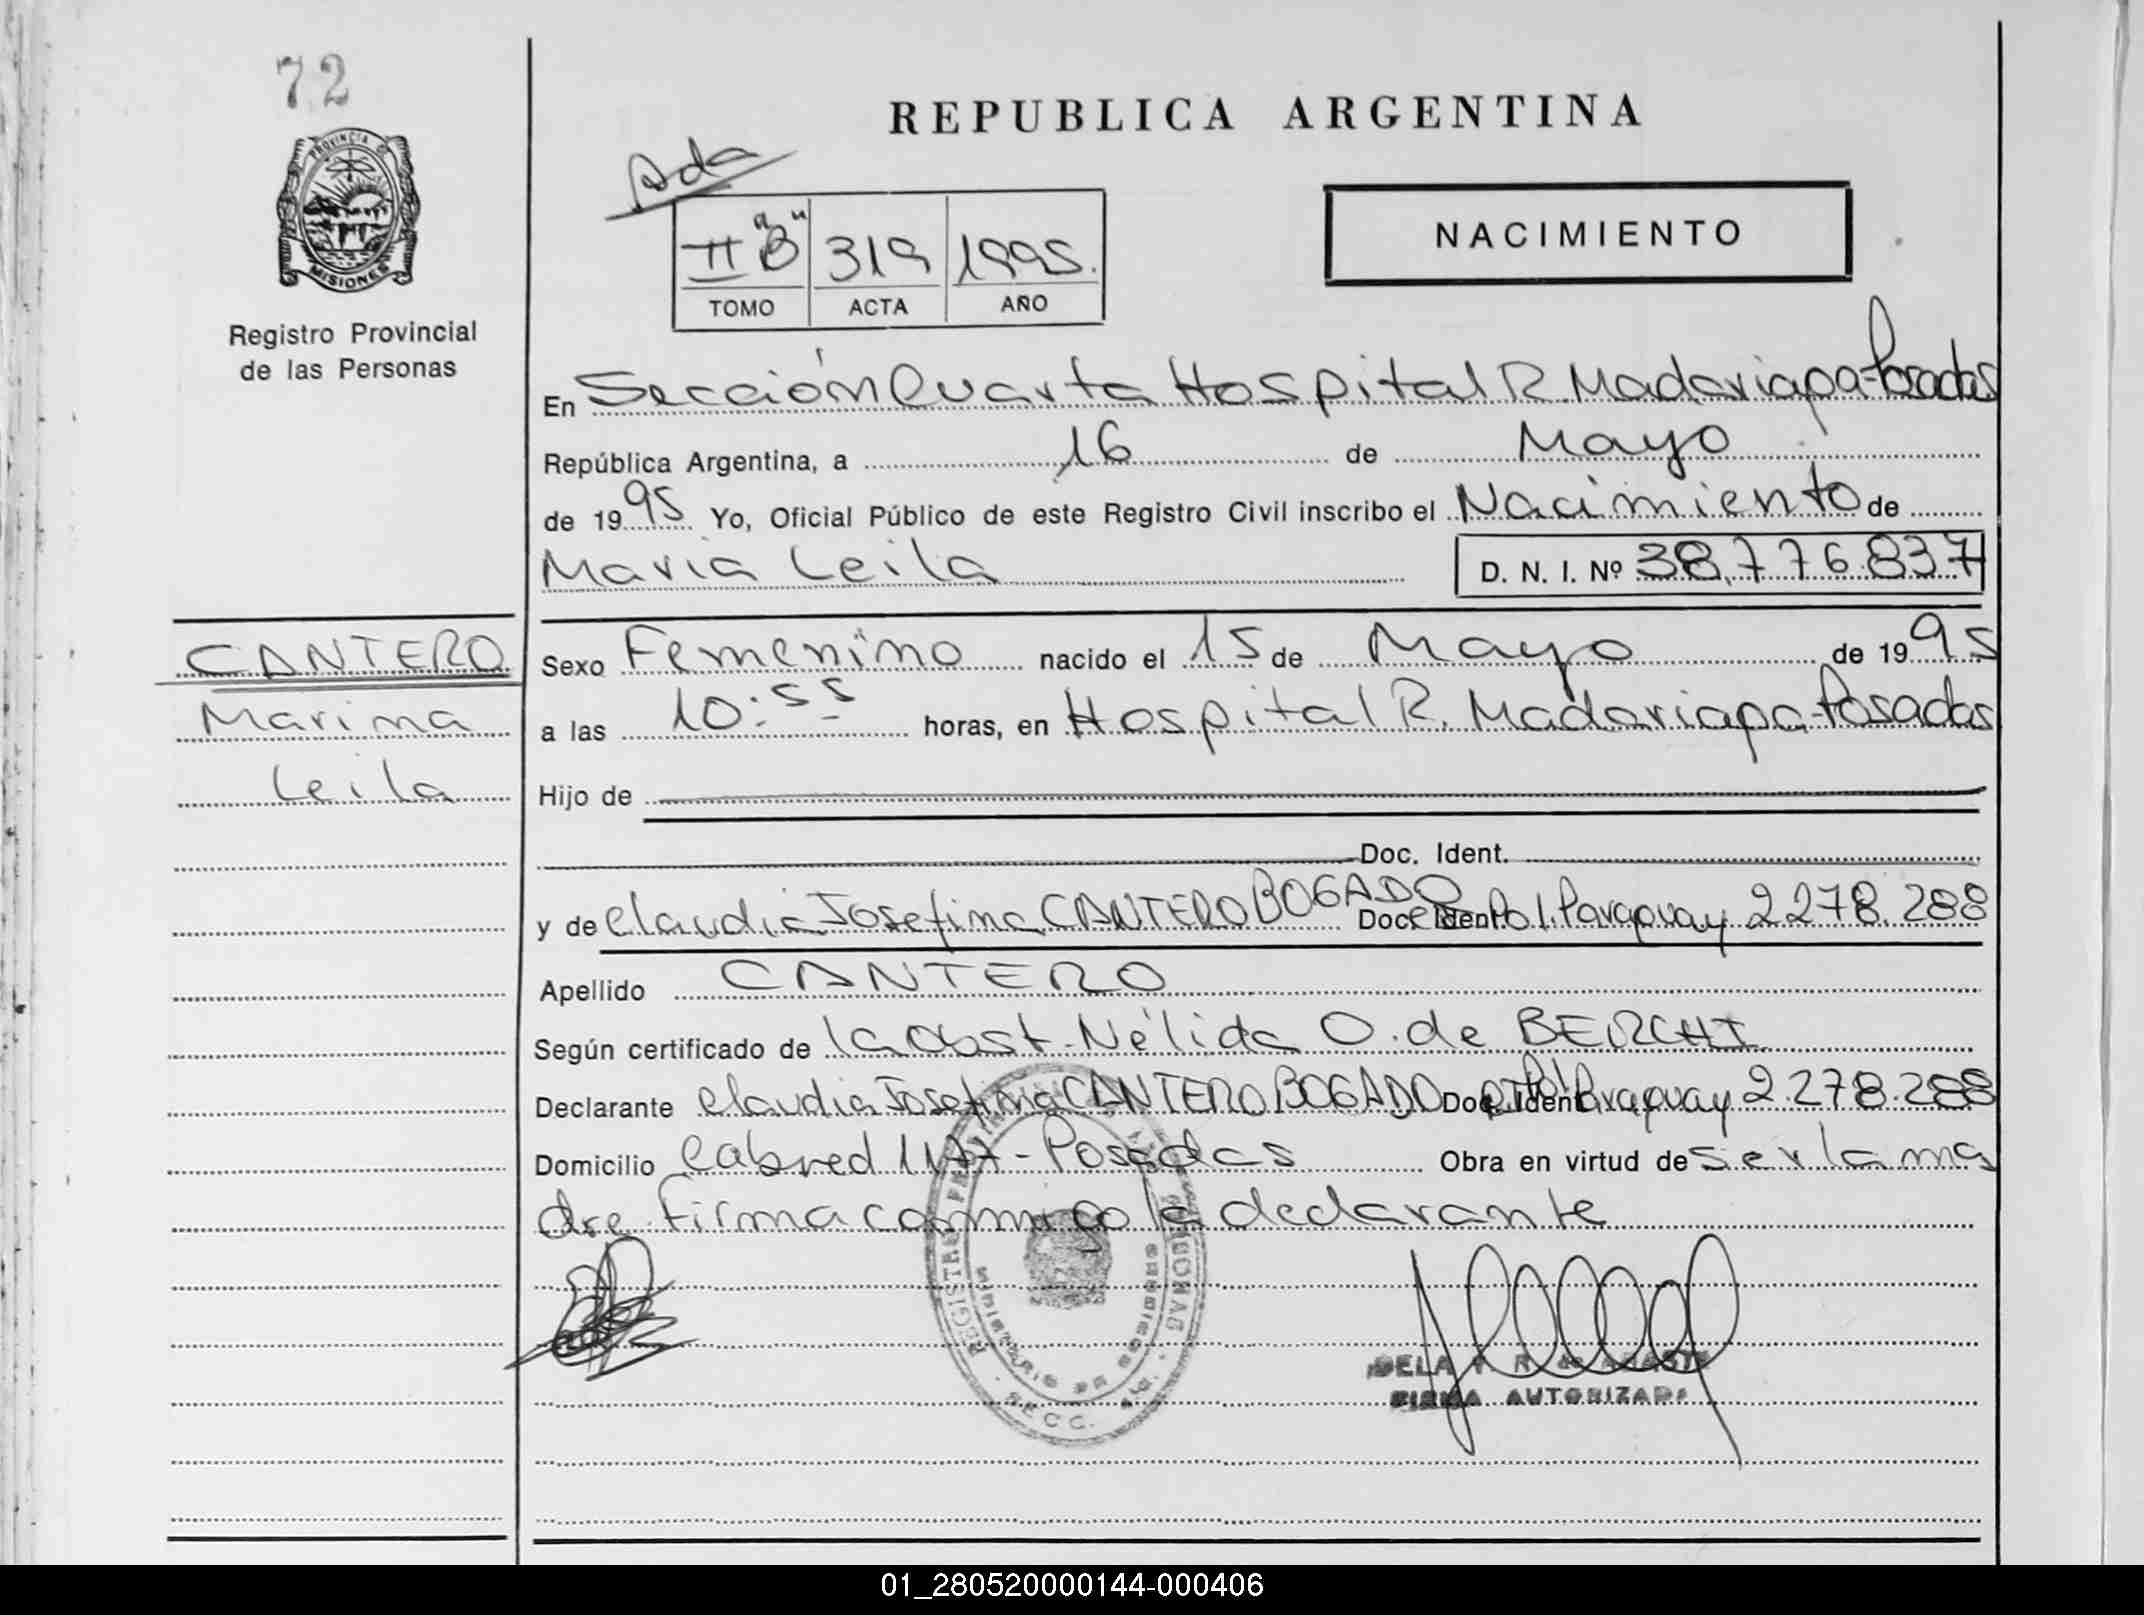 72
REPUBLICA ARGENTINA
Ada
PROVINCIA D
MISIONES
II "B" 319 1995.
TOMO ACTA AÑO
NACIMIENTO
Registro Provincial
de las Personas
En Sección Cuarta Hospital R. Madariaga-Posadas
República Argentina, a 16 de Mayo
de 1995 Yo, Oficial Público de este Registro Civil inscribo el Nacimiento de
Maria Leila D. N. I. Nº 38.776.837
CANTERO
Marina
Leila
Sexo Femenino nacido el 15 de Mayo de 1995
a las 10:55 horas, en Hospital R. Madariaga-Posadas
Hijo de
Doc. Ident.
y de Claudia Josefina CANTERO BOGADO Doc. Ident. Pol. Paraguay 2278.288
Apellido CANTERO
Según certificado de la Obst. Nélida O. de BERCHI
Declarante Claudia Josefina CANTERO BOGADO Doc. Ident. Pol. Paraguay 2.278.288
Domicilio Cabred 1177 - Posadas Obra en virtud de ser la ma
dre. Firma conmigo la declarante
REGISTRO
SECC.
FIRMA AUTORIZADA
01_280520000144-000406